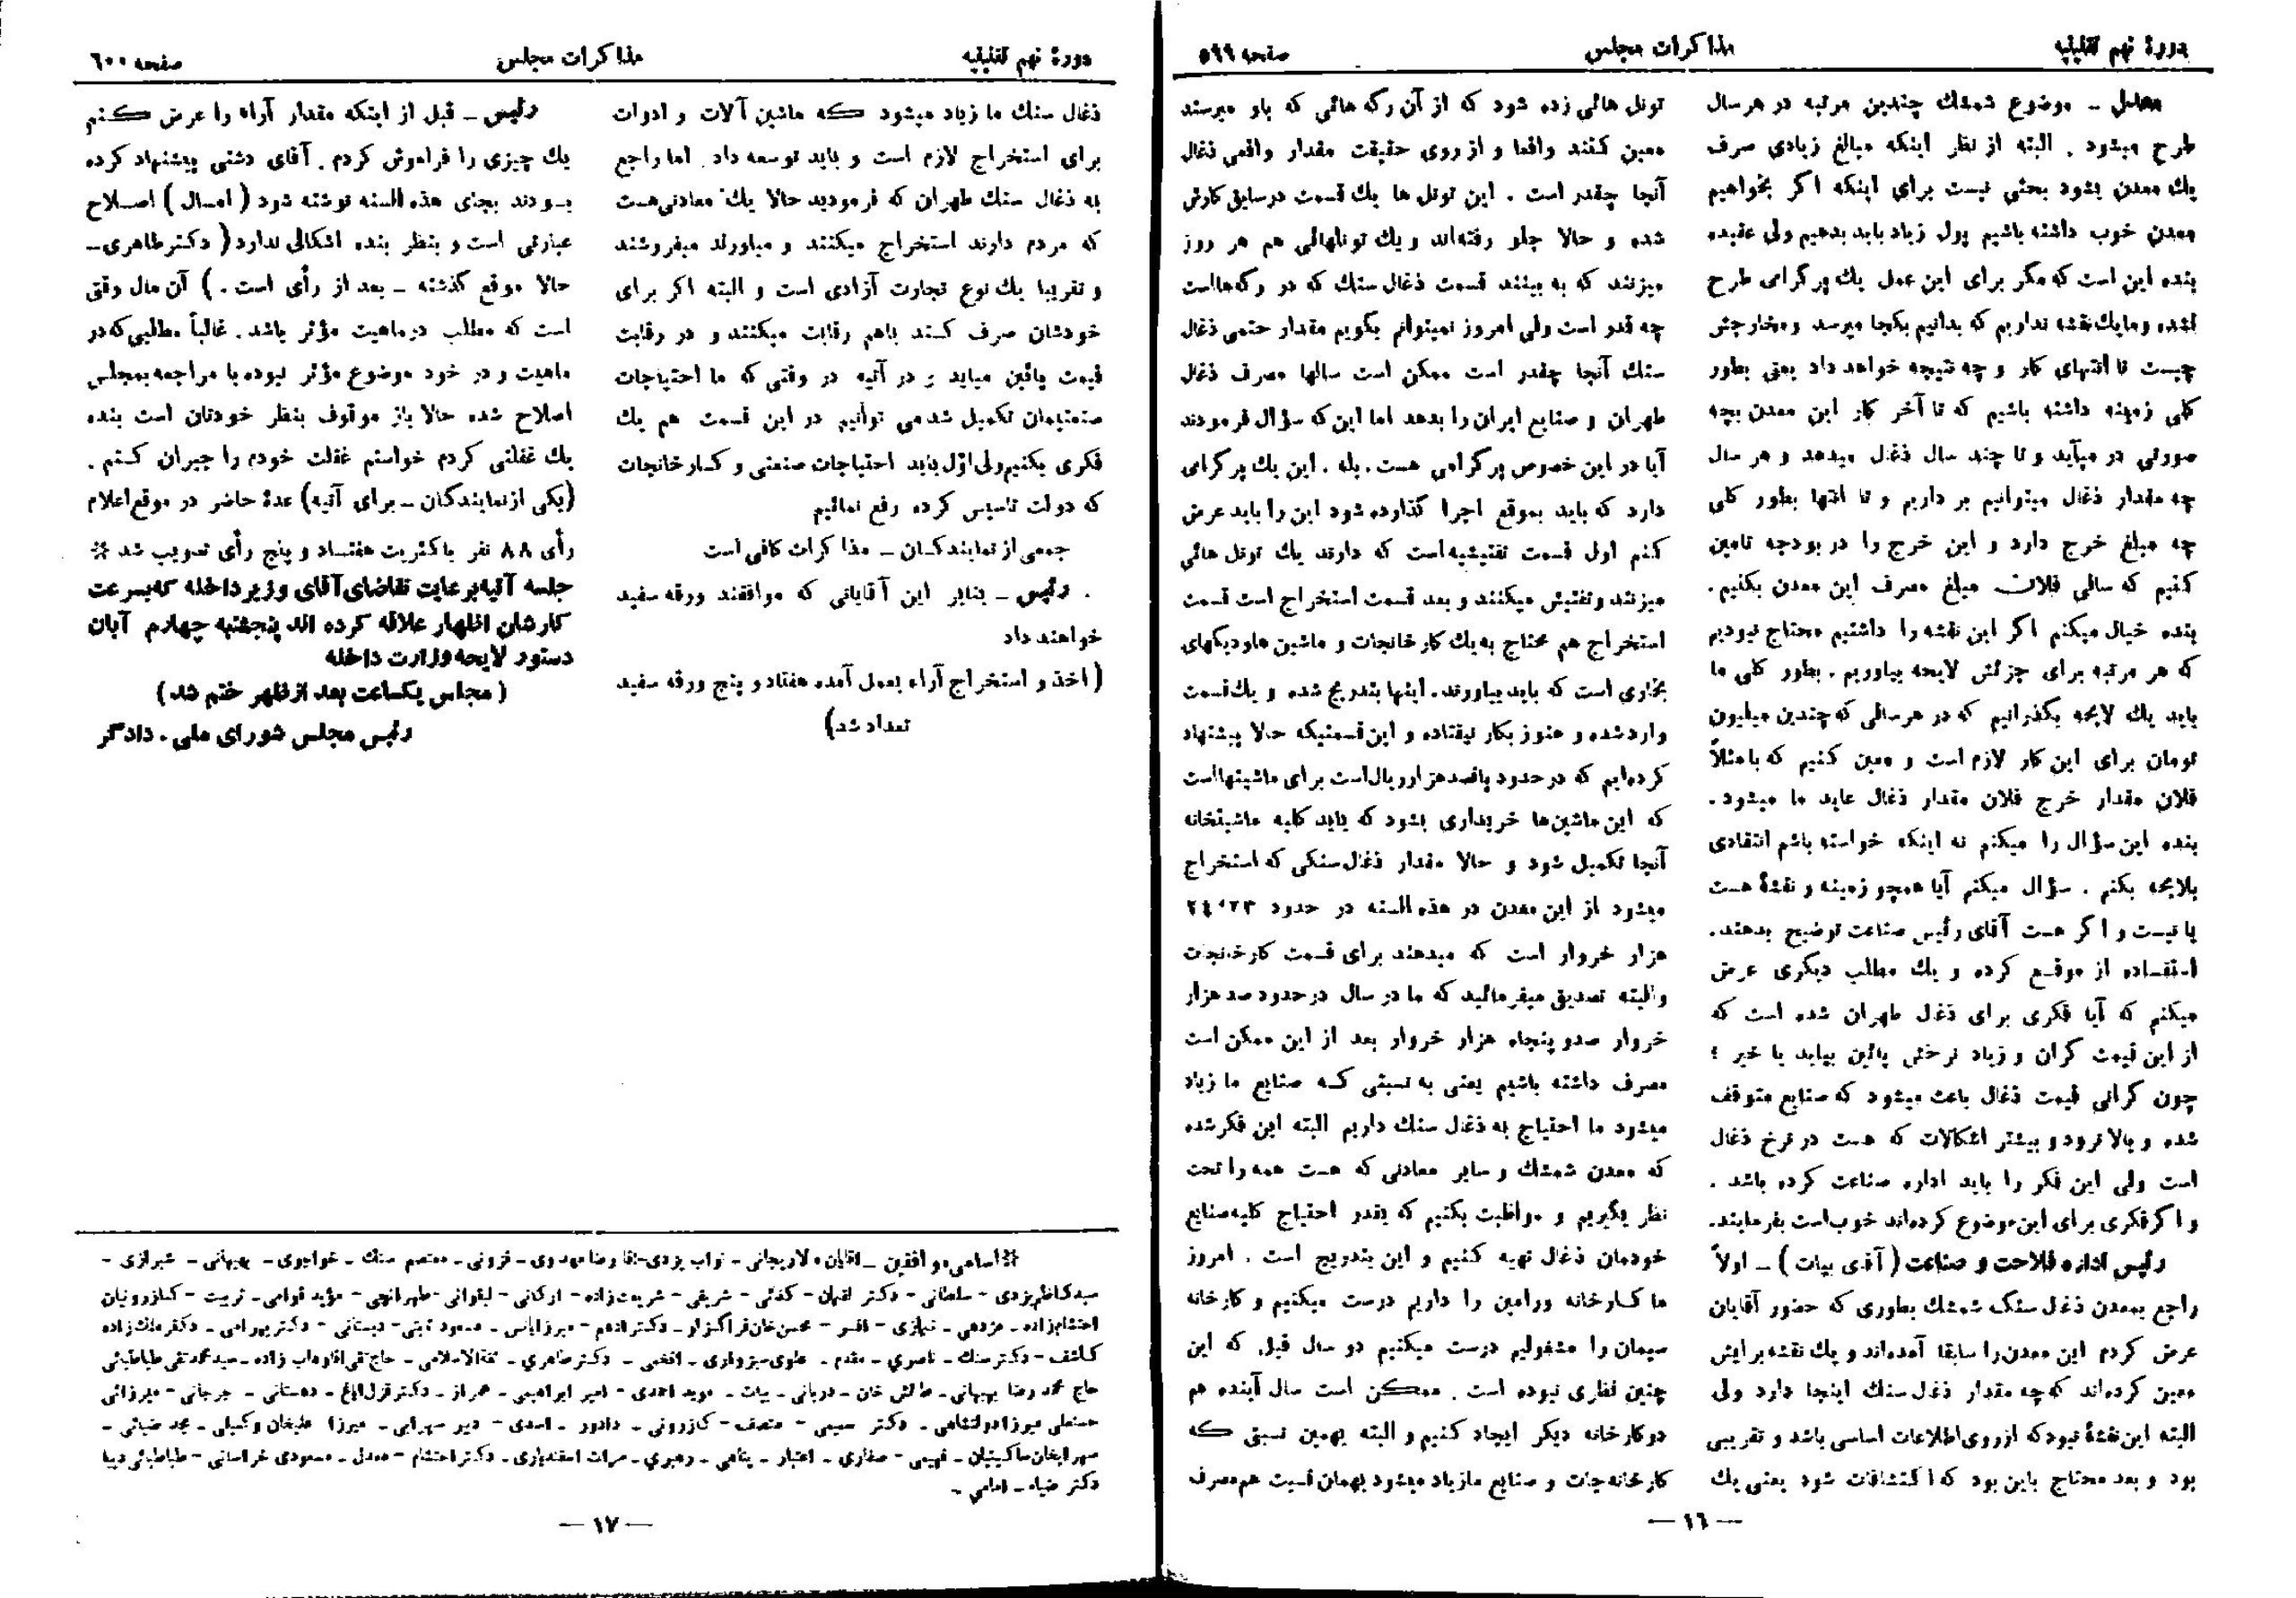 دورهٔ نهم تقنینیه
مذاکرات مجلس
صفحه ۵۹۹
معدل ـ موضوع شمشك چندین مرتبه در هر سال
طرح میشود . البته از نظر اینکه مبالغ زیادی صرف
یك معدن بشود بحثی نیست برای اینکه اگر بخواهیم
معدن خوب داشته باشیم پول زیاد باید بدهیم ولی عقیده
بنده این است که مگر برای این عمل یك پرگرامی طرح
نشده و ما یك نقشه نداریم که بدانیم بکجا میرسد و مخارجش
چیست تا انتهای کار و چه نتیجه خواهد داد یعنی بطور
کلی زمینه داشته باشیم که تا آخر کار این معدن بچه
صورتی در میآید و تا چند سال ذغال میدهد و هر سال
چه مقدار ذغال میتوانیم بر داریم و تا انتها بطور کلی
چه مبلغ خرج دارد و این خرج را در بودجه تامین
کنیم که سالی فلان مبلغ مصرف این معدن بکنیم.
بنده خیال میکنم اگر این نقشه را داشتیم محتاج نبودیم
که هر مرتبه برای جزئش لایحه بیاوریم . بطور کلی ما
باید یك لایحه بگذرانیم که در هر سالی که چندین میلیون
تومان برای این کار لازم است و معین کنیم که با مثلاً
فلان مقدار خرج فلان مقدار ذغال عاید ما میشود.
بنده این سؤال را میکنم نه اینکه خواسته باشم انتقادی
بلایحه بکنم . سؤال میکنم آیا همچو زمینه و نقشهٔ هست
یا نیست و اگر هست آقای رئیس صناعت توضیح بدهند.
استفاده از موقع کرده و یك مطلب دیگری عرض
میکنم که آیا فکری برای ذغال طهران شده است که
از این قیمت گران و زیاد نرخش پائین بیاید یا خیر ؟
چون گرانی قیمت ذغال باعث میشود که صنایع متوقف
شده و بالا نرود و بیشتر اشکالات که هست در نرخ ذغال
است ولی این فکر را باید اداره صناعت کرده باشد .
و اگر فکری برای این موضوع کرده‌اند خوب است بفرمایند.
رئیس اداره فلاحت و صناعت ( آقای بیات ) ـ اولاً
راجع بمعدن ذغال سنگ شمشك بطوری که حضور آقایان
عرض کردم این معدن را سابقا آمده‌اند و یك نقشه برایش
معین کرده‌اند که چه مقدار ذغال سنك اینجا دارد ولی
البته این نقشهٔ نبود که از روی اطلاعات اساسی باشد و تقریبی
بود و بعد محتاج باین بود که اکتشافات شود یعنی یك
تونل هائی زده شود که از آن رگه هائی که باو میرسند
معین کنند واقعا و از روی حقیقت مقدار واقعی ذغال
آنجا چقدر است . این تونل ها یك قسمت در سابق کارش
شده و حالا جلو رفته‌اند و یك تونلهائی هم هر روز
میزنند که به بینند قسمت ذغال سنك که در رگه‌هااست
چه قدر است ولی امروز نمیتوانم بگویم مقدار حتمی ذغال
سنك آنجا چقدر است ممکن است سالها مصرف ذغال
طهران و صنایع ایران را بدهد اما این که سؤال فرمودند
آیا در این خصوص پرگرامی هست . بله . این یك پرگرامی
دارد که باید بموقع اجرا گذارده شود این را باید عرض
کنم اول قسمت تفتیشیه است که دارند یك تونل هائی
میزنند و تفتیش میکنند و بعد قسمت استخراج است قسمت
استخراج هم محتاج به یك کارخانجات و ماشین ها و دیگهای
بخاری است که باید بیاورند. اینها بتدریج شده و یك قسمت
وارد شده و هنوز بکار نیفتاده و این قسمتیکه حالا پیشنهاد
کرده‌ایم که در حدود پانصد هزار ریال است برای ماشینهااست
که این ماشین‌ها خریداری بشود که باید کلیه ماشینخانه
آنجا تکمیل شود و حالا مقدار ذغال سنگی که استخراج
میشود از این معدن در هذه السنه در حدود ۲۳،۲٤
هزار خروار است که میدهند برای قسمت کارخانجات
والبته تصدیق میفرمائید که ما در سال در حدود صد هزار
خروار صد و پنجاه هزار خروار بعد از این ممکن است
مصرف داشته باشیم یعنی به نسبتی که صنایع ما زیاد
میشود ما احتیاج به ذغال سنك داریم البته این فکر شده
که معدن شمشك و سایر معادنی که هست همه را تحت
نظر بگیریم و مواظبت بکنیم که بقدر احتیاج کلیه صنایع
خودمان ذغال تهیه کنیم و این بتدریج است . امروز
ما کارخانه ورامین را داریم درست میکنیم و کارخانه
سیمان را مشغولیم درست میکنیم دو سال قبل که این
چنین نظری نبوده است . ممکن است سال آینده هم
دو کارخانه دیگر ایجاد کنیم و البته بهمین نسبق که
کارخانه‌جات و صنایع ما زیاد میشود بهمان نسبت هم مصرف
— ۱٦ —
دورهٔ نهم تقنینیه
مذاکرات مجلس
صفحه ٦۰۰
ذغال سنك ما زیاد میشود که ماشین آلات و ادوات
برای استخراج لازم است و باید توسعه داد . اما راجع
به ذغال سنك طهران که فرمودید حالا یك معادنی هست
که مردم دارند استخراج میکنند و میاورند میفروشند
و تقریبا یك نوع تجارت آزادی است و البته اگر برای
خودشان صرف کند باهم رقابت میکنند و در رقابت
قیمت پائین میاید و در آتیه در وقتی که ما احتیاجات
صنعتیمان تکمیل شد می توانیم در این قسمت هم یك
فکری بکنیم ولی اوّل باید احتیاجات صنعتی و کارخانجات
که دولت تاسیس کرده رفع نمائیم
جمعی از نمایندگان ـ مذاکرات کافی است
رئیس ـ بنابر این آقایانی که موافقند ورقه سفید
خواهند داد
( اخذ و استخراج آراء بعمل آمده هفتاد و پنج ورقه سفید
تعداد شد)
رئیس ـ قبل از اینکه مقدار آراء را عرض کنم
یك چیزی را فراموش کردم . آقای دشتی پیشنهاد کرده
بودند بجای هذه السنه نوشته شود ( امسال ) اصلاح
عبارتی است و بنظر بنده اشکالی ندارد ( دکتر طاهری ـ
حالا موقع گذشته ـ بعد از رأی است . ) آن مال وقتی
است که مطلب در ماهیت مؤثر باشد . غالباً مطالبی که در
ماهیت و در خود موضوع مؤثر نبوده با مراجعه بمجلس
اصلاح شده حالا باز موقوف بنظر خودتان است بنده
یك غفلتی کردم خواستم غفلت خودم را جبران کنم .
(یکی از نمایندگان ـ برای آتیه) عدهٔ حاضر در موقع اعلام
رأی ۸۸ نفر باکثریت هفتاد و پنج رأی تصویب شد ※
جلسه آتیه بر عایت تقاضای آقای وزیر داخله که بسرعت
کارشان اظهار علاقه کرده اند پنجشنبه چهارم آبان
دستور لایحه وزارت داخله
( مجلس یکساعت بعد از ظهر ختم شد )
رئیس مجلس شورای ملی ـ دادگر
※ اسامی موافقین ـ آقایان ـ لاریجانی ـ نواب یزدی ـ آقا رضا مهدوی ـ قزونی ـ معتصم سنك ـ خواجوی ـ بهبهانی ـ شیرازی ـ
سید کاظم یزدی ـ سلطانی ـ دکتر لقمان ـ کفائی ـ شریفی ـ شریعت زاده ـ ارگانی ـ لیقوانی ـ طهرانچی ـ مؤید قوامی ـ تربیت ـ کازرونیان
احتشام زاده ـ ـ نیازی ـ افسر ـ محسن خان قراگزلو ـ دکتر ادهم ـ میرزا یانس ـ مسعود ثابتی ـ دبستانی ـ ـ دکتر ملك زاده
کاشف ـ دکتر سنك ـ ناصری ـ مقدم ـ علوی سبزواری ـ افخمی ـ دکتر طاهری ـ ثقة الاسلامی ـ حاج تقی آقا وهاب زاده ـ سید محمد تقی طباطبائی
حاج محمد رضا بهبهانی ـ طالش خان ـ دربانی ـ بیات ـ موید احمدی ـ امیر ابراهیمی ـ همراز ـ دکتر قزل ایاغ ـ دهستانی ـ جرجانی ـ میرزائی
حسنعلی میرزا دولتشاهی ـ دکتر سمیعی ـ منصف ـ کازرونی ـ دادور ـ اسدی ـ دبیر سهرابی ـ میرزا علیخان وکیلی ـ مجد ضیائی ـ
سهرابخان ساگینیان ـ فهیمی ـ صفاری ـ اعتبار ـ پناهی ـ رهبری ـ مرات اسفندیاری ـ دکتر احتشام ـ معدل ـ مسعودی خراسانی ـ طباطبائی دیبا
دکتر ضیاء ـ امامی ـ
— ۱۷ —